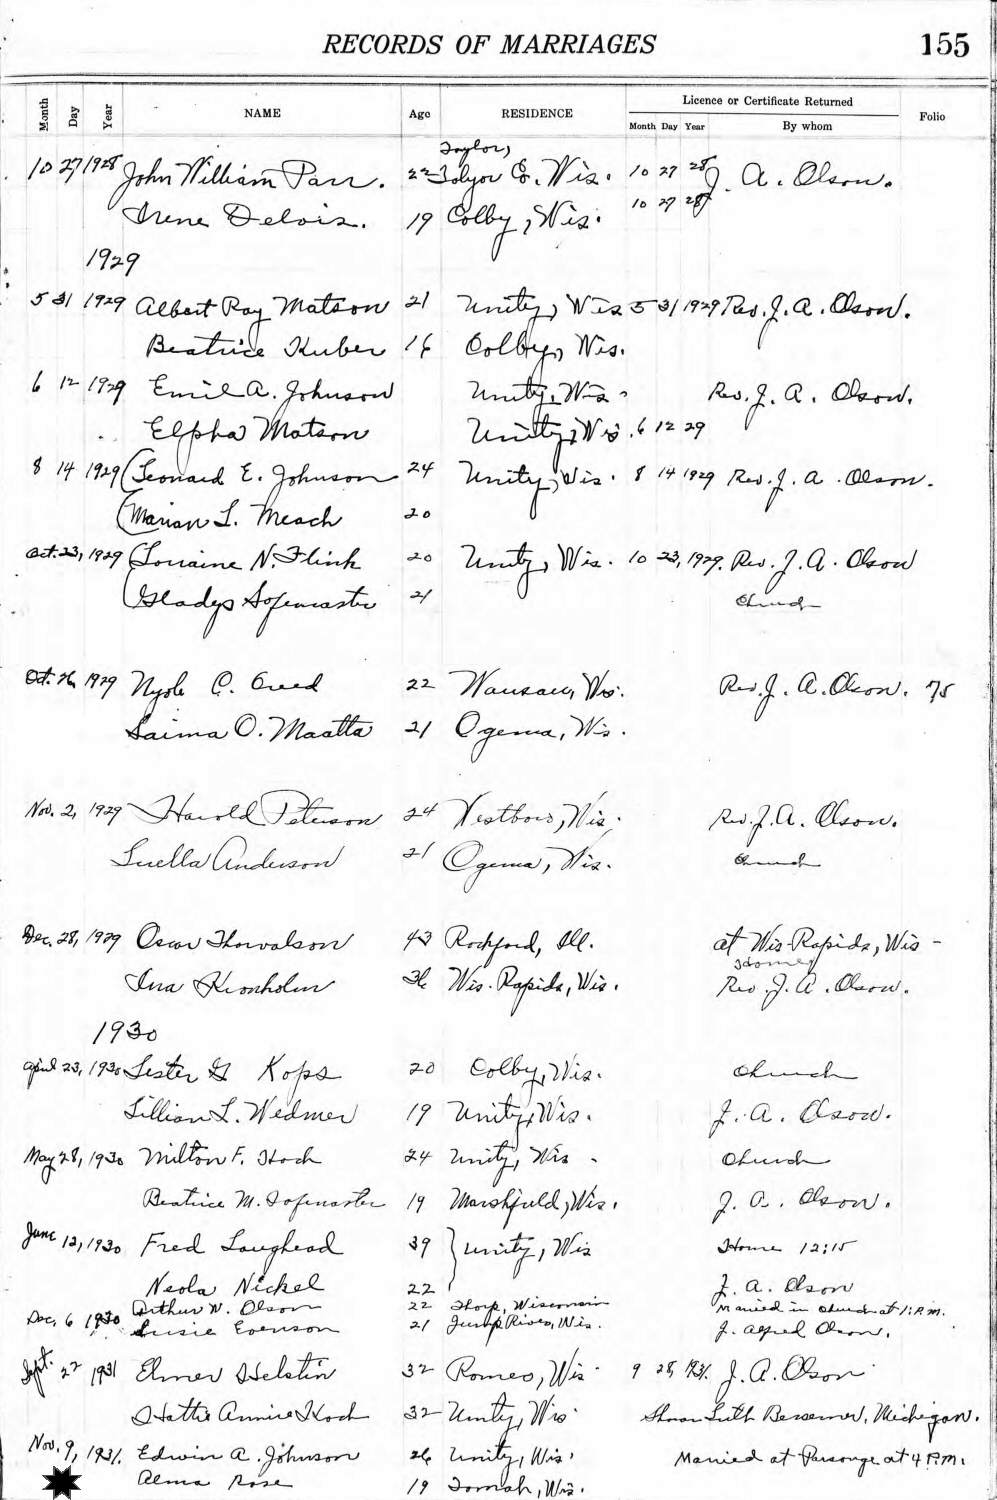 RECORDS OF MARRIAGES 155
Month Day Year NAME Age RESIDENCE Licence or Certificate Returned Folio
Month Day Year By whom
Taylor,
10 27 1928 John William Parr. 22 Co. Wis. 10 27 28 J. A. Olson.
Irene Delois. 19 Colby, Wis. 10 27 28
1929
5 31 1929 Albert Ray Matson 21 Unity, Wis 5 31 1929 Rev. J. A. Olson.
Beatrice Huber 16 Colby, Wis.
6 12 1929 Emil A. Johnson Unity, Wis. Rev. J. A. Olson.
Elpha Matson Unity, Wis. 6 12 29
8 14 1929 (Leonard E. Johnson 24 Unity, Wis. 8 14 1929 Rev. J. A. Olson.
(Marian L. Meach 20
Oct. 23, 1929 (Lorraine N. Flink 20 Unity, Wis. 10 23, 1929. Rev. J. A. Olson
(Gladys Sofemaster 21 Church
Oct. 26, 1929 C. Creed 22 Wausau, Wis. Rev. J. A. Olson. 75
Saima O. Maatta 21 Ogema, Wis.
Nov. 2, 1929 Harold Peterson 24 Westboro, Wis. Rev. J. A. Olson.
Luella Anderson 21 Ogema, Wis. Church
Dec. 28, 1929 Oscar Thorvalson 43 Rockford, Ill. at Wis Rapids, Wis -
Home
Ina Kronholm 36 Wis. Rapids, Wis. Rev. J. A. Olson.
1930
April 23, 1930 Lester G Kops 20 Colby, Wis. Church
Lillian L. Wedmer 19 Unity, Wis. J. A. Olson.
May 28, 1930 Milton F. Hoch 24 Unity, Wis - Church
Beatrice M. Sofemaster 19 Marshfield, Wis. J. A. Olson.
June 12, 1930 Fred Laughead 39 } Unity, Wis Home 12:15
Neola Nickel 22 J. A. Olson
Dec. 6 1930 Arthur N. Olson 22 Thorp, Wisconsin Married in Church at 1: P.M.
Susie Evenson 21 Jump River, Wis. J. Alfred Olson.
Sept. 22 1931 Elmer Helstin 32 Romeo, Wis 9 28, 1931. J. A. Olson
Hattie Annie Koch 32 Unity, Wis Luth Bessemer, Michigan.
Nov. 9, 1931. Edwin A. Johnson 26 Unity, Wis. Married at Parsonge at 4 P.M.
Alma Rose 19 Tomah, Wis.